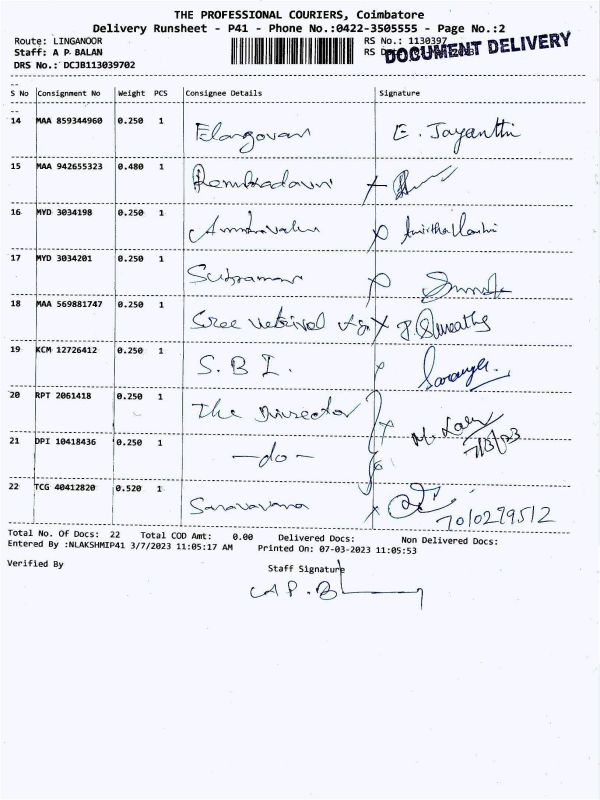 THE PROFESSIONAL COURIERS, Coimbatore
Delivery Runsheet - P41 - Phone No.:0422-3505555 - Page No.:2
Route: LINGANOOR RS No.: 1130397
Staff: A P BALAN RS
DOCUMENT DELIVERY
DRS No.: DCJB113039702
S No Consignment No Weight PCS Consignee Details Signature
14 MAA 859344960 0.250 1 Elangovan E. Jayanthi
15 MAA 942655323 0.480 1
16 MYD 3034198 0.250 1
17 MYD 3034201 0.250 1
18 MAA 569881747 0.250 1 Sree
19 KCM 12726412 0.250 1 S.B.I.
20 RPT 2061418 0.250 1 The Director
7/3/23
21 DPI 10418436 0.250 1 -do-
22 TCG 40412820 0.520 1 Saravanana
Total No. Of Docs: 22 Total COD Amt: 0.00 Delivered Docs: Non Delivered Docs:
Entered By :NLAKSHMIP41 3/7/2023 11:05:17 AM Printed On: 07-03-2023 11:05:53
Verified By Staff Signature